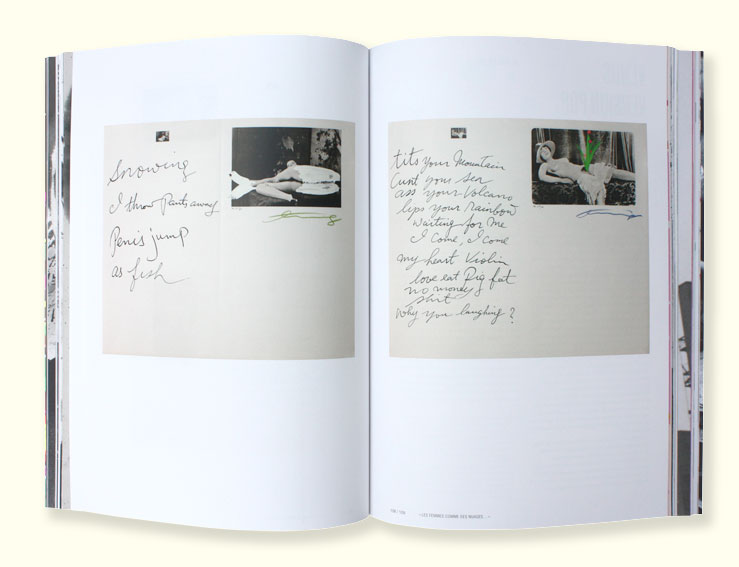 Snowing
I throw Pants away
Penis jump
as fish
tits your Mountain
Cunt your sea
ass your Volcano
lips your rainbow
waiting for me
I come, I come
my heart Violin
love eat Pig fat
no money
shit
why you laughing?
« LES FEMMES COMME DES NUAGES... »